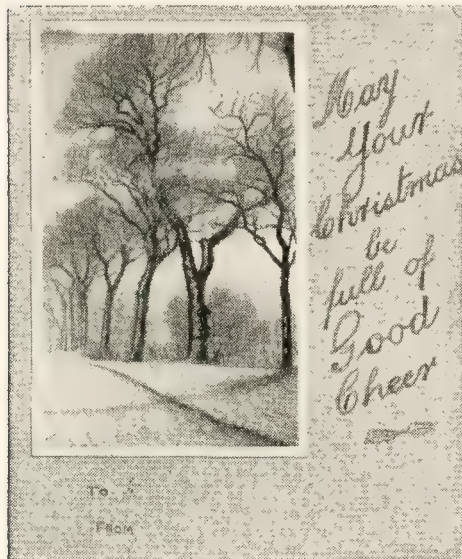 May
Your
Christmas
be
full of
Good
Cheer
To
From